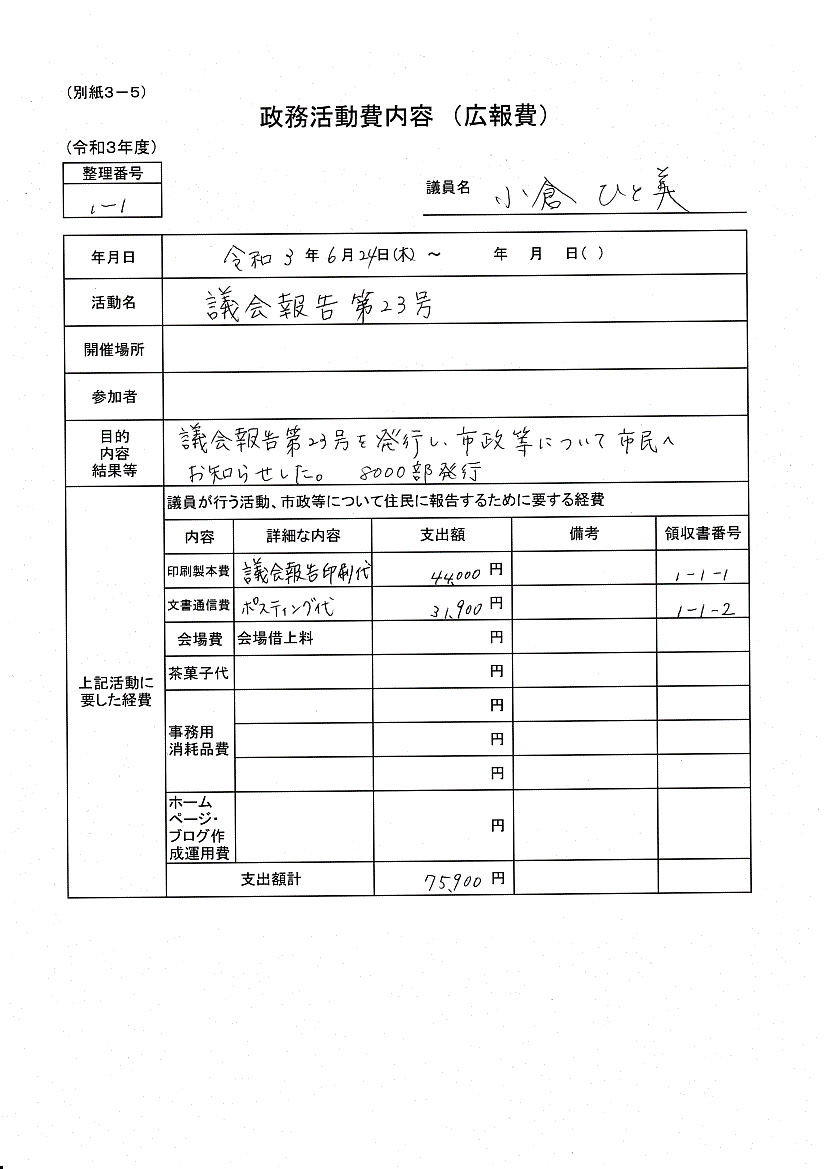 （別紙3－5）
政務活動費内容 （広報費）
（令和3年度）
整理番号
1-1
議員名 小倉 ひと美
年月日 令和 3 年 6 月 24 日(木) ～ 年 月 日( )
活動名 議会報告 第23号
開催場所
参加者
目的
内容
結果等
議会報告第23号を発行し、市政等について市民へ
お知らせした。 8000部発行
上記活動に
要した経費
議員が行う活動、市政等について住民に報告するために要する経費
内容 詳細な内容 支出額 備考 領収書番号
印刷製本費 議会報告印刷代 44,000 円 1-1-1
文書通信費 ポスティング代 31,900 円 1-1-2
会場費 会場借上料 円
茶菓子代 円
事務用
消耗品費
円
円
円
ホーム
ページ・
ブログ作
成運用費
円
支出額計 75,900 円